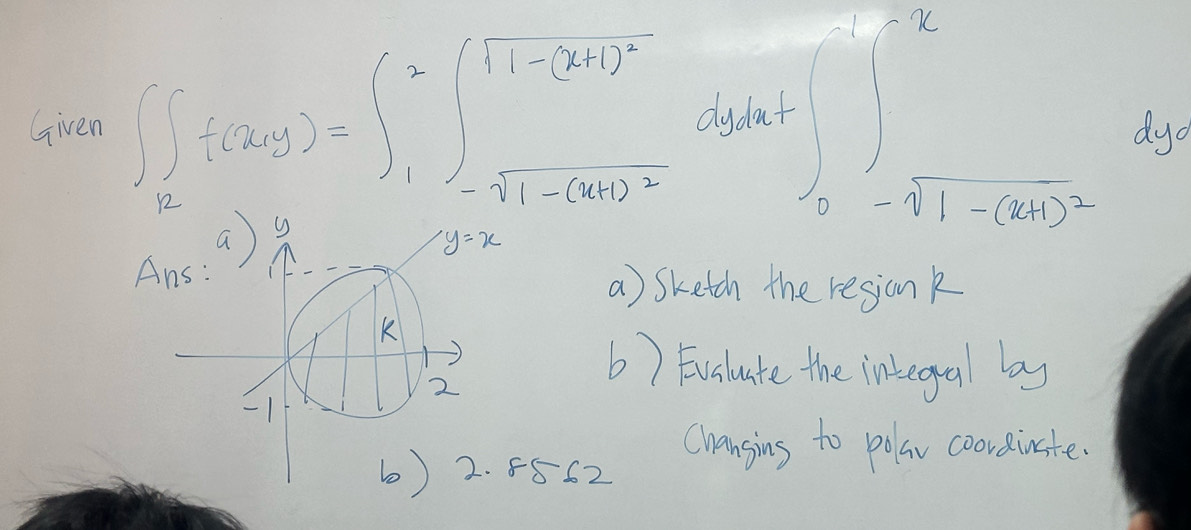 Given ∬_R f(x,y) = ∫_1^2 ∫_{-√(1-(x+1)²)}^{√(1-(x+1)²)} dydx + ∫_0^1 ∫_{-√(1-(x+1)²)}^x dyd
Ans: a) y
y=x
1
R
2
-1
b) 2.8562
a) Sketch the region R
b) Evaluate the integral by
Changing to polar coordinate.